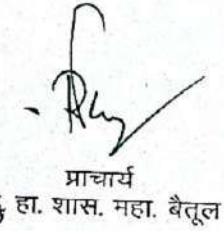 प्राचार्य
हा. शास. महा. बैतूल